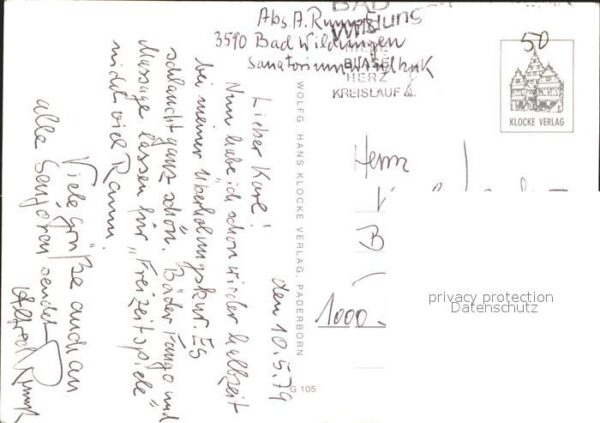 Abs. A.
3590 Bad Wildungen
Sanatorium
BAD
WILDUNGEN
BLASE
HERZ
KREISLAUF
50
KLOCKE VERLAG
den 10.5.79
Lieber Karl!
Nun habe ich schon wieder halbzeit
bei meiner Überholungskur. Es
schlaucht ganz schön. Bäder Fango und
Massage lassen für „Freizeitspiele"
nicht viel Raum.
Viele Grüße auch an
alle Senioren sendet
Alfred
WOLFG. HANS KLOCKE VERLAG, PADERBORN
G 105
Herrn
1000
privacy protection
Datenschutz